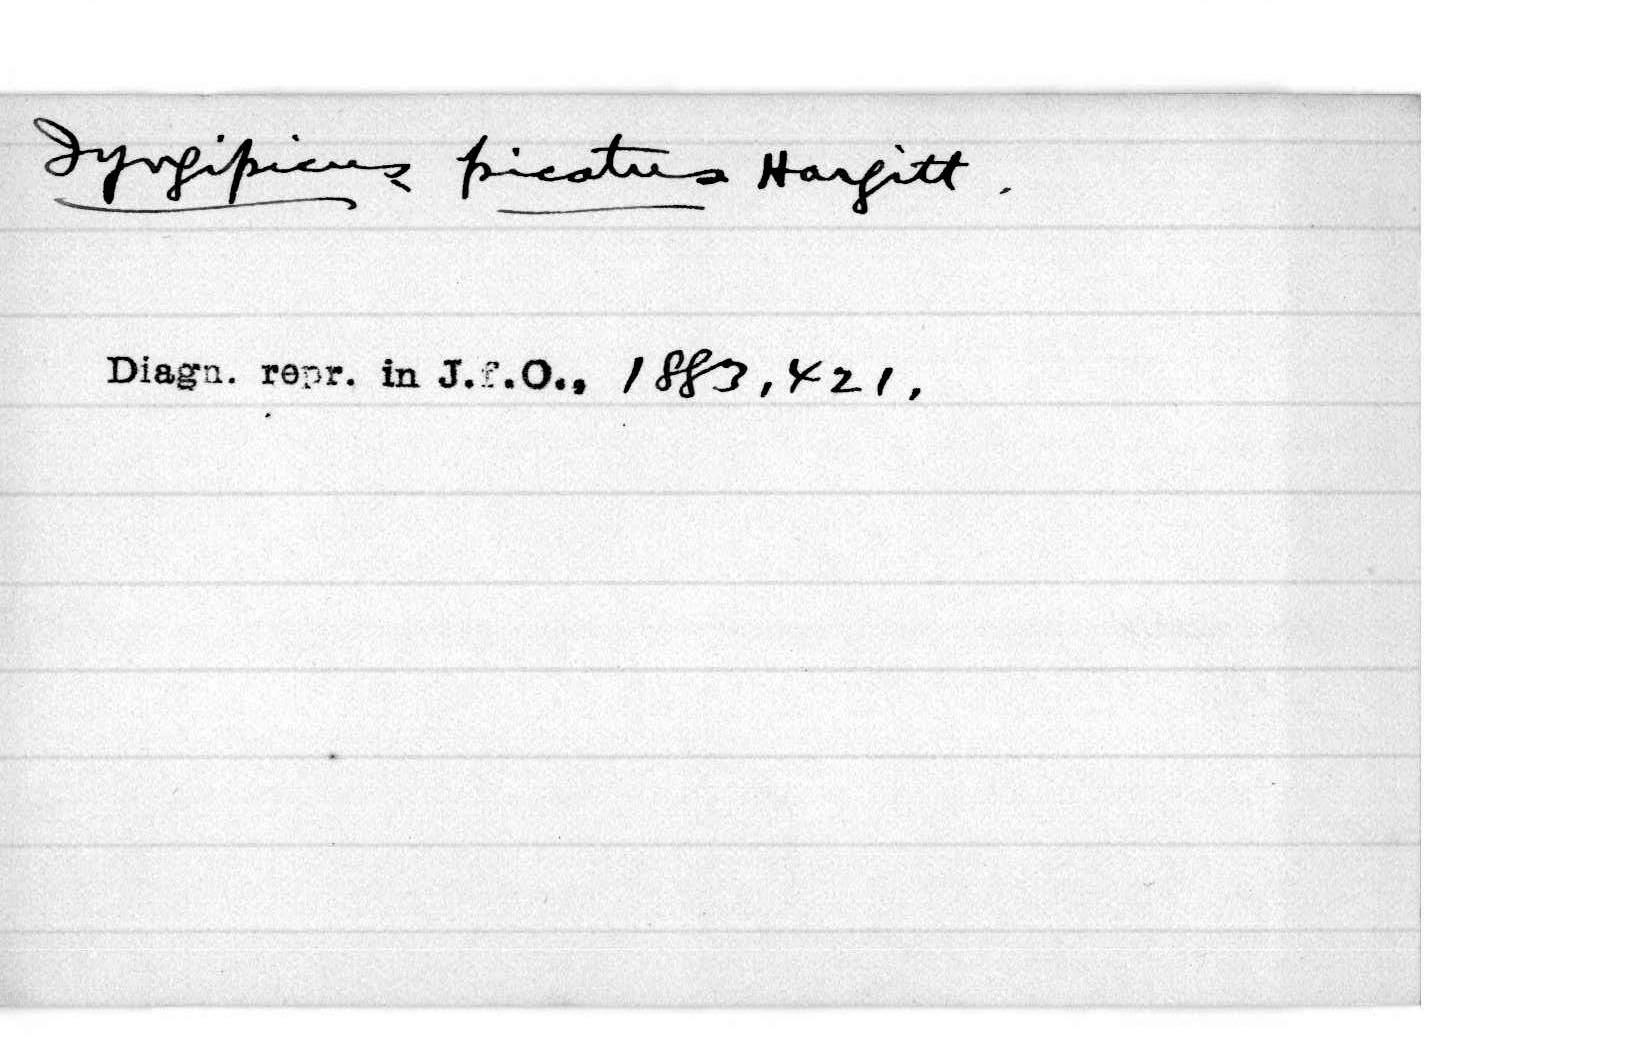 Iyngipicus picatus Hargitt.
Diagn. repr. in J.f.O., 1883, 421,